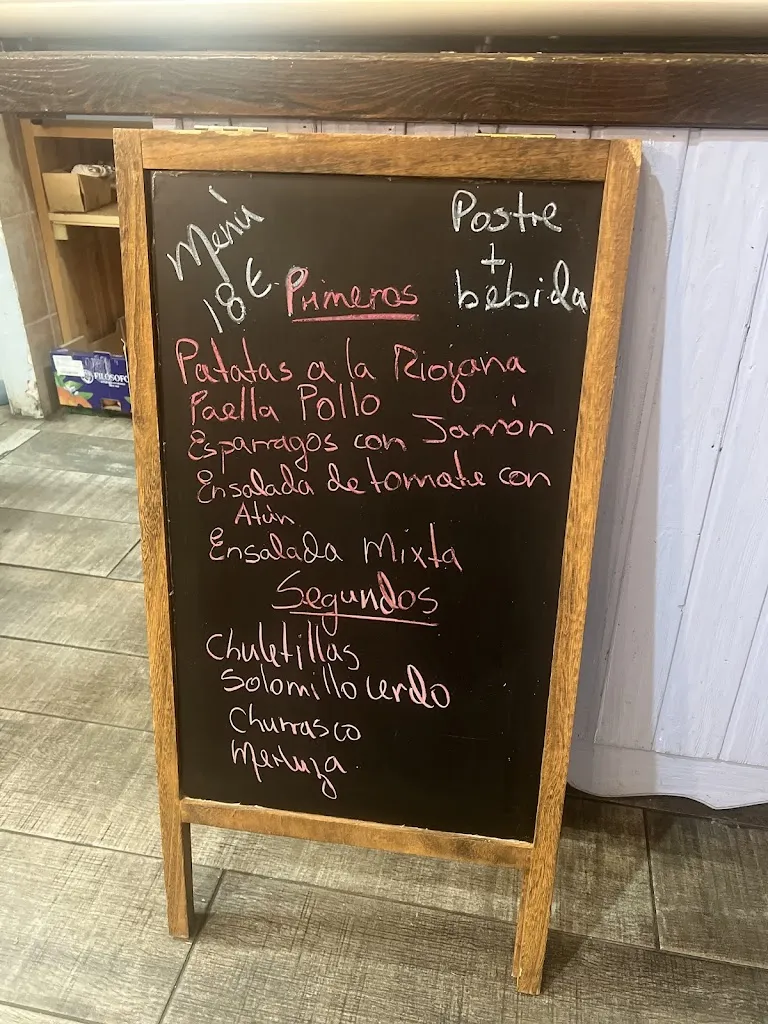 Menú
18€
Postre
+
bebida
Primeros
Patatas a la Riojana
Paella Pollo
Esparragos con Jamón
Ensalada de tomate con
Atún
Ensalada Mixta
Segundos
Chuletillas
Solomillo cerdo
Churrasco
Merluza
FILOSOFO